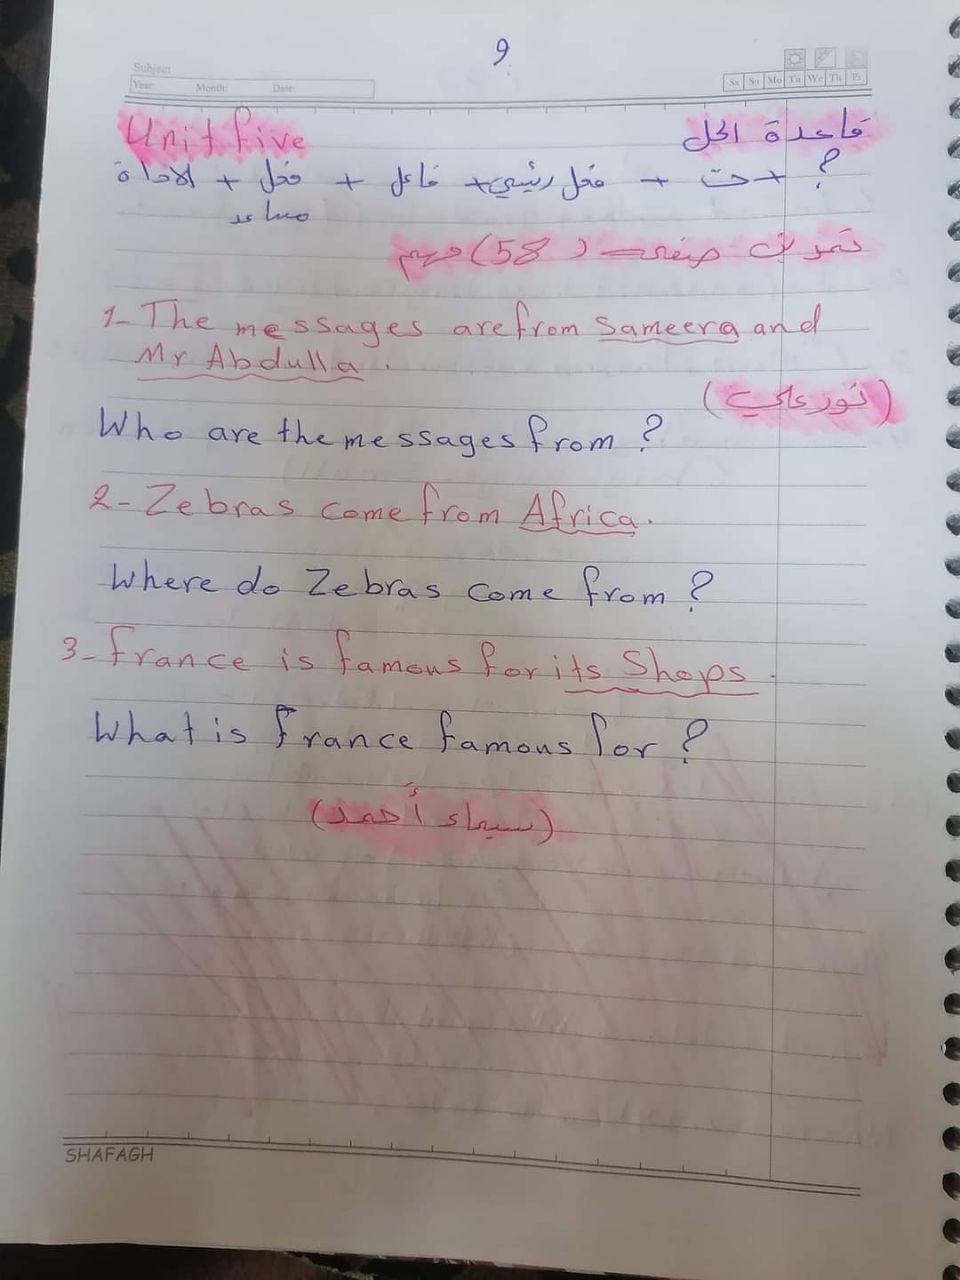 9
Subject
Year: Month: Date:
Sa Su Mo Tu We Th Fr
Unit five قاعدة الحل
الاداة + فعل + فاعل + فعل رئيسي + حت + ?
مساعد
تمرين صفحة (58) مهم
1- The messages are from Sameera and
Mr Abdulla.
(نور علي)
Who are the messages from?
2- Zebras come from Africa.
Where do Zebras come from?
3- france is famous for its Shops.
What is france famous for?
(سيماء أحمد)
SHAFAGH